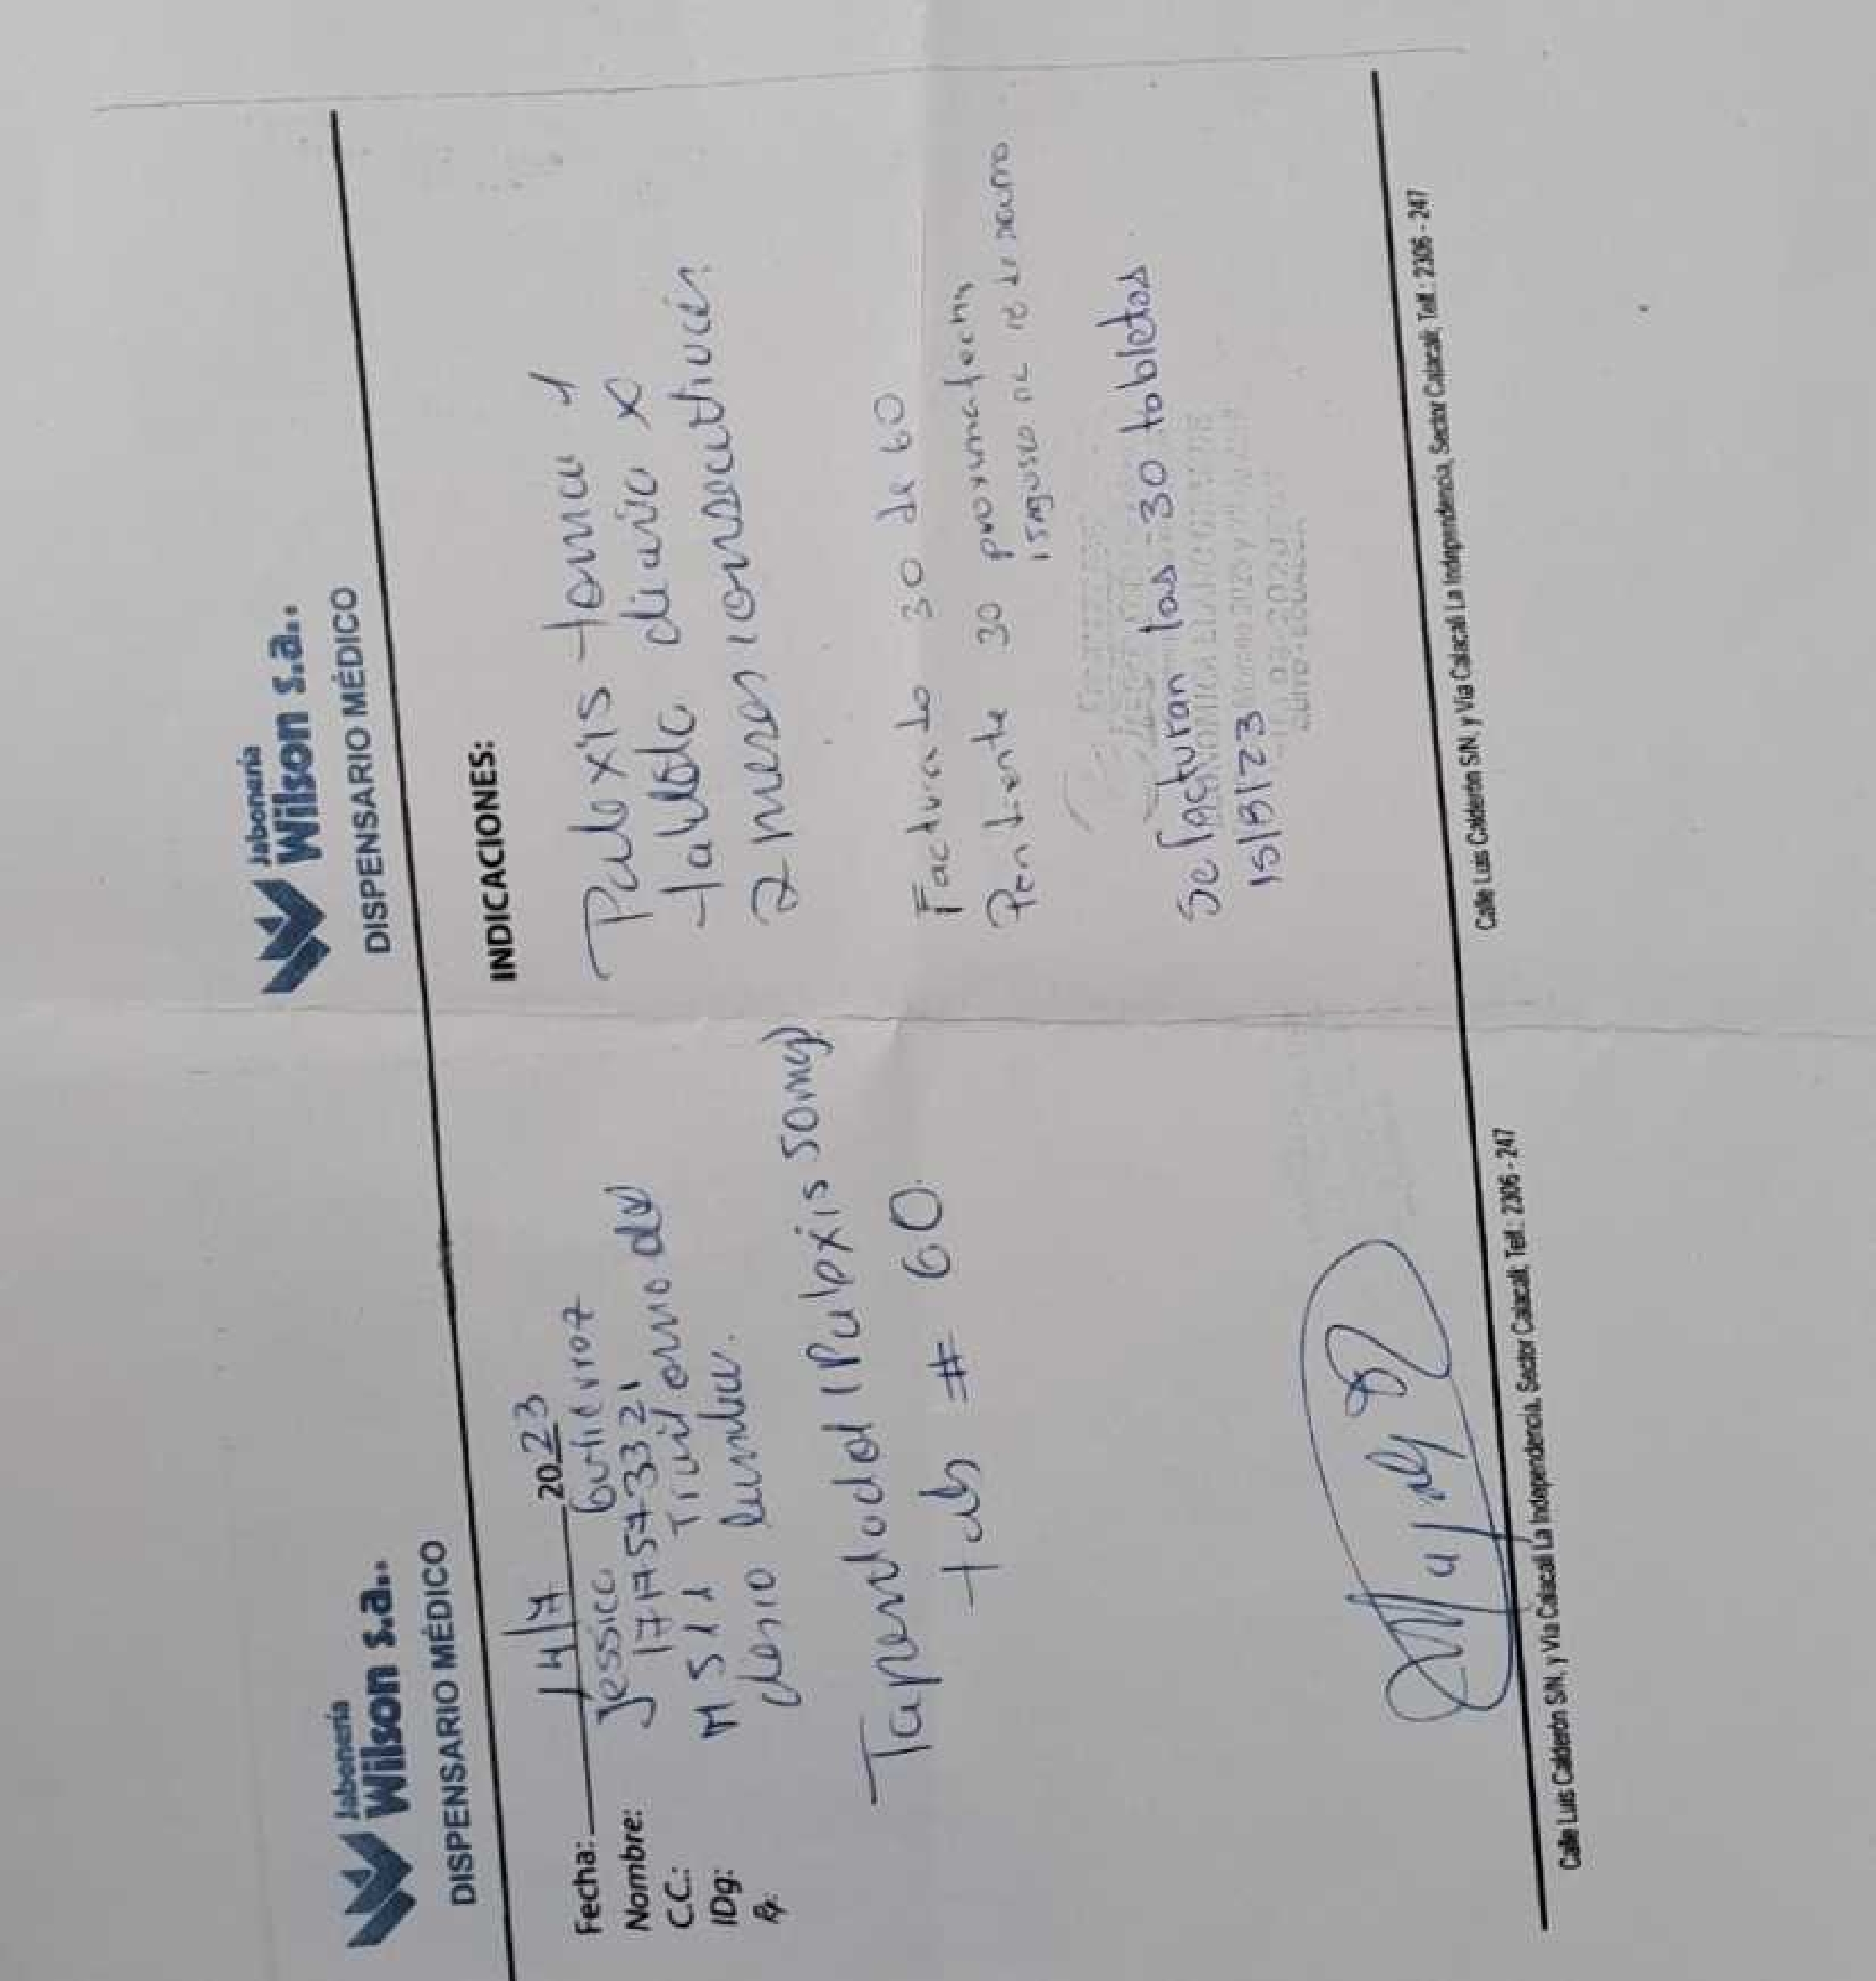 Jabonería
Wilson s.a..
DISPENSARIO MÉDICO
Fecha: 14/7 2023
Nombre: Jessica Gutierrez
C.C.: 1717573321
IDg: M511 Trastorno del
Rp: disco lumbar.
Tapendadol (Palexis 50mg)
tab # 60
Calle Luis Calderón S/N. y Vía Calacalí La Independencia, Sector Calacalí; Telf.: 2306 - 247
Jabonería
Wilson s.a..
DISPENSARIO MÉDICO
INDICACIONES:
Palexis tomar 1
tableta diaria x
2 meses consecutivos
Facturado 30 de 60
Pendiente 30 proxima fecha
15 agosto
Se facturan las 30 tabletas.
15/8/23
Calle Luis Calderón S/N. y Vía Calacalí La Independencia, Sector Calacalí; Telf.: 2306 - 247